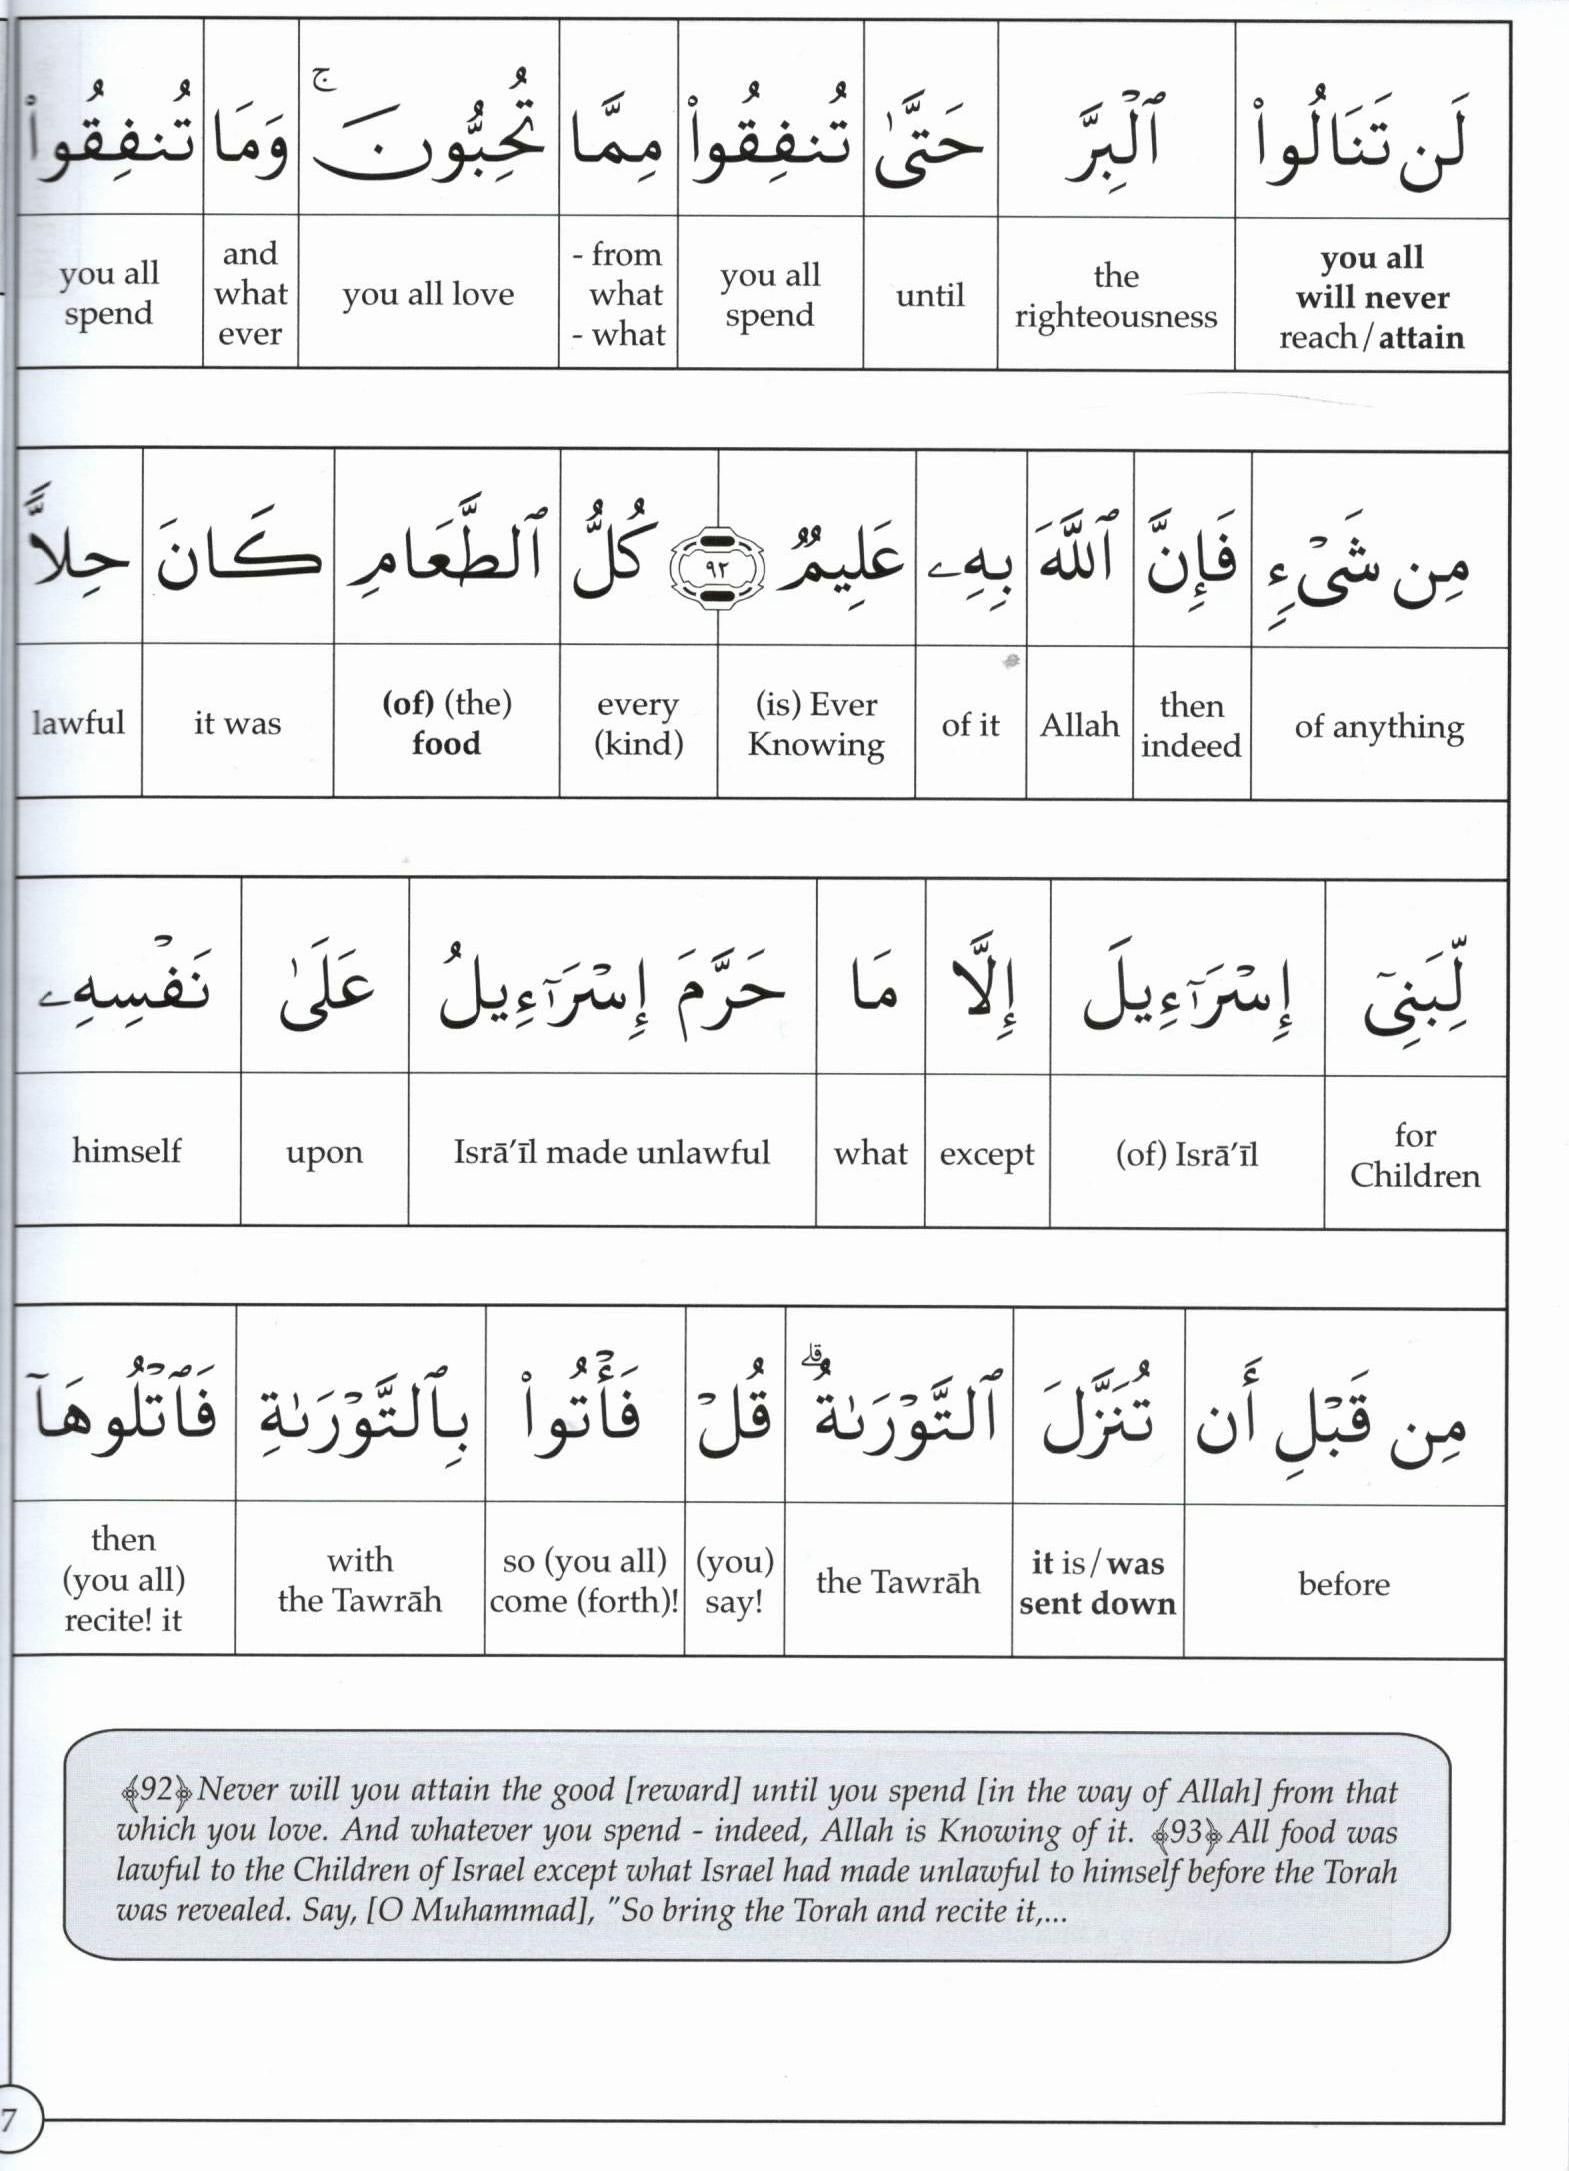 لَن تَنَالُوا۟ ٱلْبِرَّ حَتَّىٰ تُنفِقُوا۟ مِمَّا تُحِبُّونَ ۚ وَمَا تُنفِقُوا۟
you all will never reach/attain
the righteousness
until
you all spend
- from what - what
you all love
and what ever
you all spend
مِن شَىْءٍ فَإِنَّ ٱللَّهَ بِهِۦ عَلِيمٌ ٩٢ كُلُّ ٱلطَّعَامِ كَانَ حِلًّا
of anything
then indeed
Allah
of it
(is) Ever Knowing
every (kind)
(of) (the) food
it was
lawful
لِّبَنِىٓ إِسْرَٰٓءِيلَ إِلَّا مَا حَرَّمَ إِسْرَٰٓءِيلُ عَلَىٰ نَفْسِهِۦ
for Children
(of) Isrā’īl
except
what
Isrā’īl made unlawful
upon
himself
مِن قَبْلِ أَن تُنَزَّلَ ٱلتَّوْرَىٰةُ ۗ قُلْ فَأْتُوا۟ بِٱلتَّوْرَىٰةِ فَٱتْلُوهَآ
before
it is/was sent down
the Tawrāh
(you) say!
so (you all) come (forth)!
with the Tawrāh
then (you all) recite! it
﴾92﴿ Never will you attain the good [reward] until you spend [in the way of Allah] from that
which you love. And whatever you spend - indeed, Allah is Knowing of it. ﴾93﴿ All food was
lawful to the Children of Israel except what Israel had made unlawful to himself before the Torah
was revealed. Say, [O Muhammad], "So bring the Torah and recite it,...
7